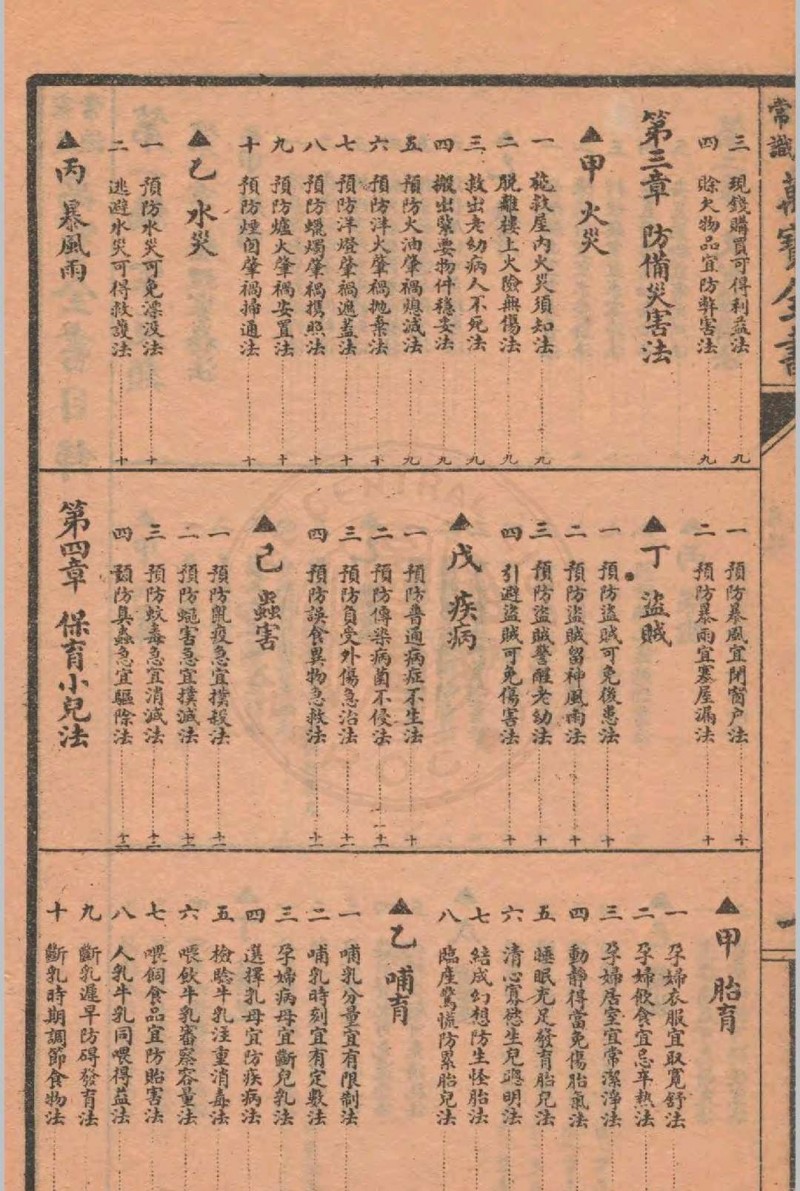 常識萬寶全書
三 現錢購買可得利益法 九
四 賒欠物品宜防弊害法 九
第三章 防備災害法
▲甲 火災
一 施救屋內火災須知法 九
二 脫離樓上火險無傷法 九
三 救出老幼病人不死法 九
四 搬出緊要物件穩妥法 九
五 預防火油肇禍熄滅法 九
六 預防洋火肇禍拋棄法 十
七 預防洋燈肇禍遮蓋法 十
八 預防蠟燭肇禍携照法 十
九 預防爐火肇禍安置法 十
十 預防煙囪肇禍掃通法 十
▲乙 水災
一 預防水災可免漂没法 十
二 逃避水災可得救護法 十
▲丙 暴風雨
一 預防暴風宜閉窗户法 十
二 預防暴雨宜塞屋漏法 十
▲丁 盜賊
一 預防盜賊可免後患法 十
二 預防盜賊留神風雨法 十
三 預防盜賊警醒老幼法 十
四 引避盜賊可免傷害法 十
▲戊 疾病
一 預防普通病症不生法 十
二 預防傳染病菌不侵法 十一
三 預防負受外傷急治法 十一
四 預防誤食異物急救法 十一
▲己 蟲害
一 預防鼠疫急宜撲殺法 十一
二 預防蠅害急宜撲滅法 十一
三 預防蚊毒急宜消滅法 十二
四 預防臭蟲急宜驅除法 十二
第四章 保育小兒法
▲甲 胎育
一 孕婦衣服宜取寬舒法
二 孕婦飲食宜忌辛熱法
三 孕婦居室宜常潔淨法
四 動靜得當免傷胎氣法
五 睡眠充足發育胎兒法
六 清心寡慾生兒聰明法
七 結成幻想防生怪胎法
八 臨產驚慌防累胎兒法
▲乙 哺育
一 哺乳分量宜有限制法
二 哺乳時刻宜有定數法
三 孕婦病母宜斷兒乳法
四 選擇乳母宜防疾病法
五 檢驗牛乳注重消毒法
六 喂飲牛乳審察容量法
七 喂飼食品宜防貽害法
八 人乳牛乳同喂得益法
九 斷乳遲早防碍發育法
十 斷乳時期調節食物法